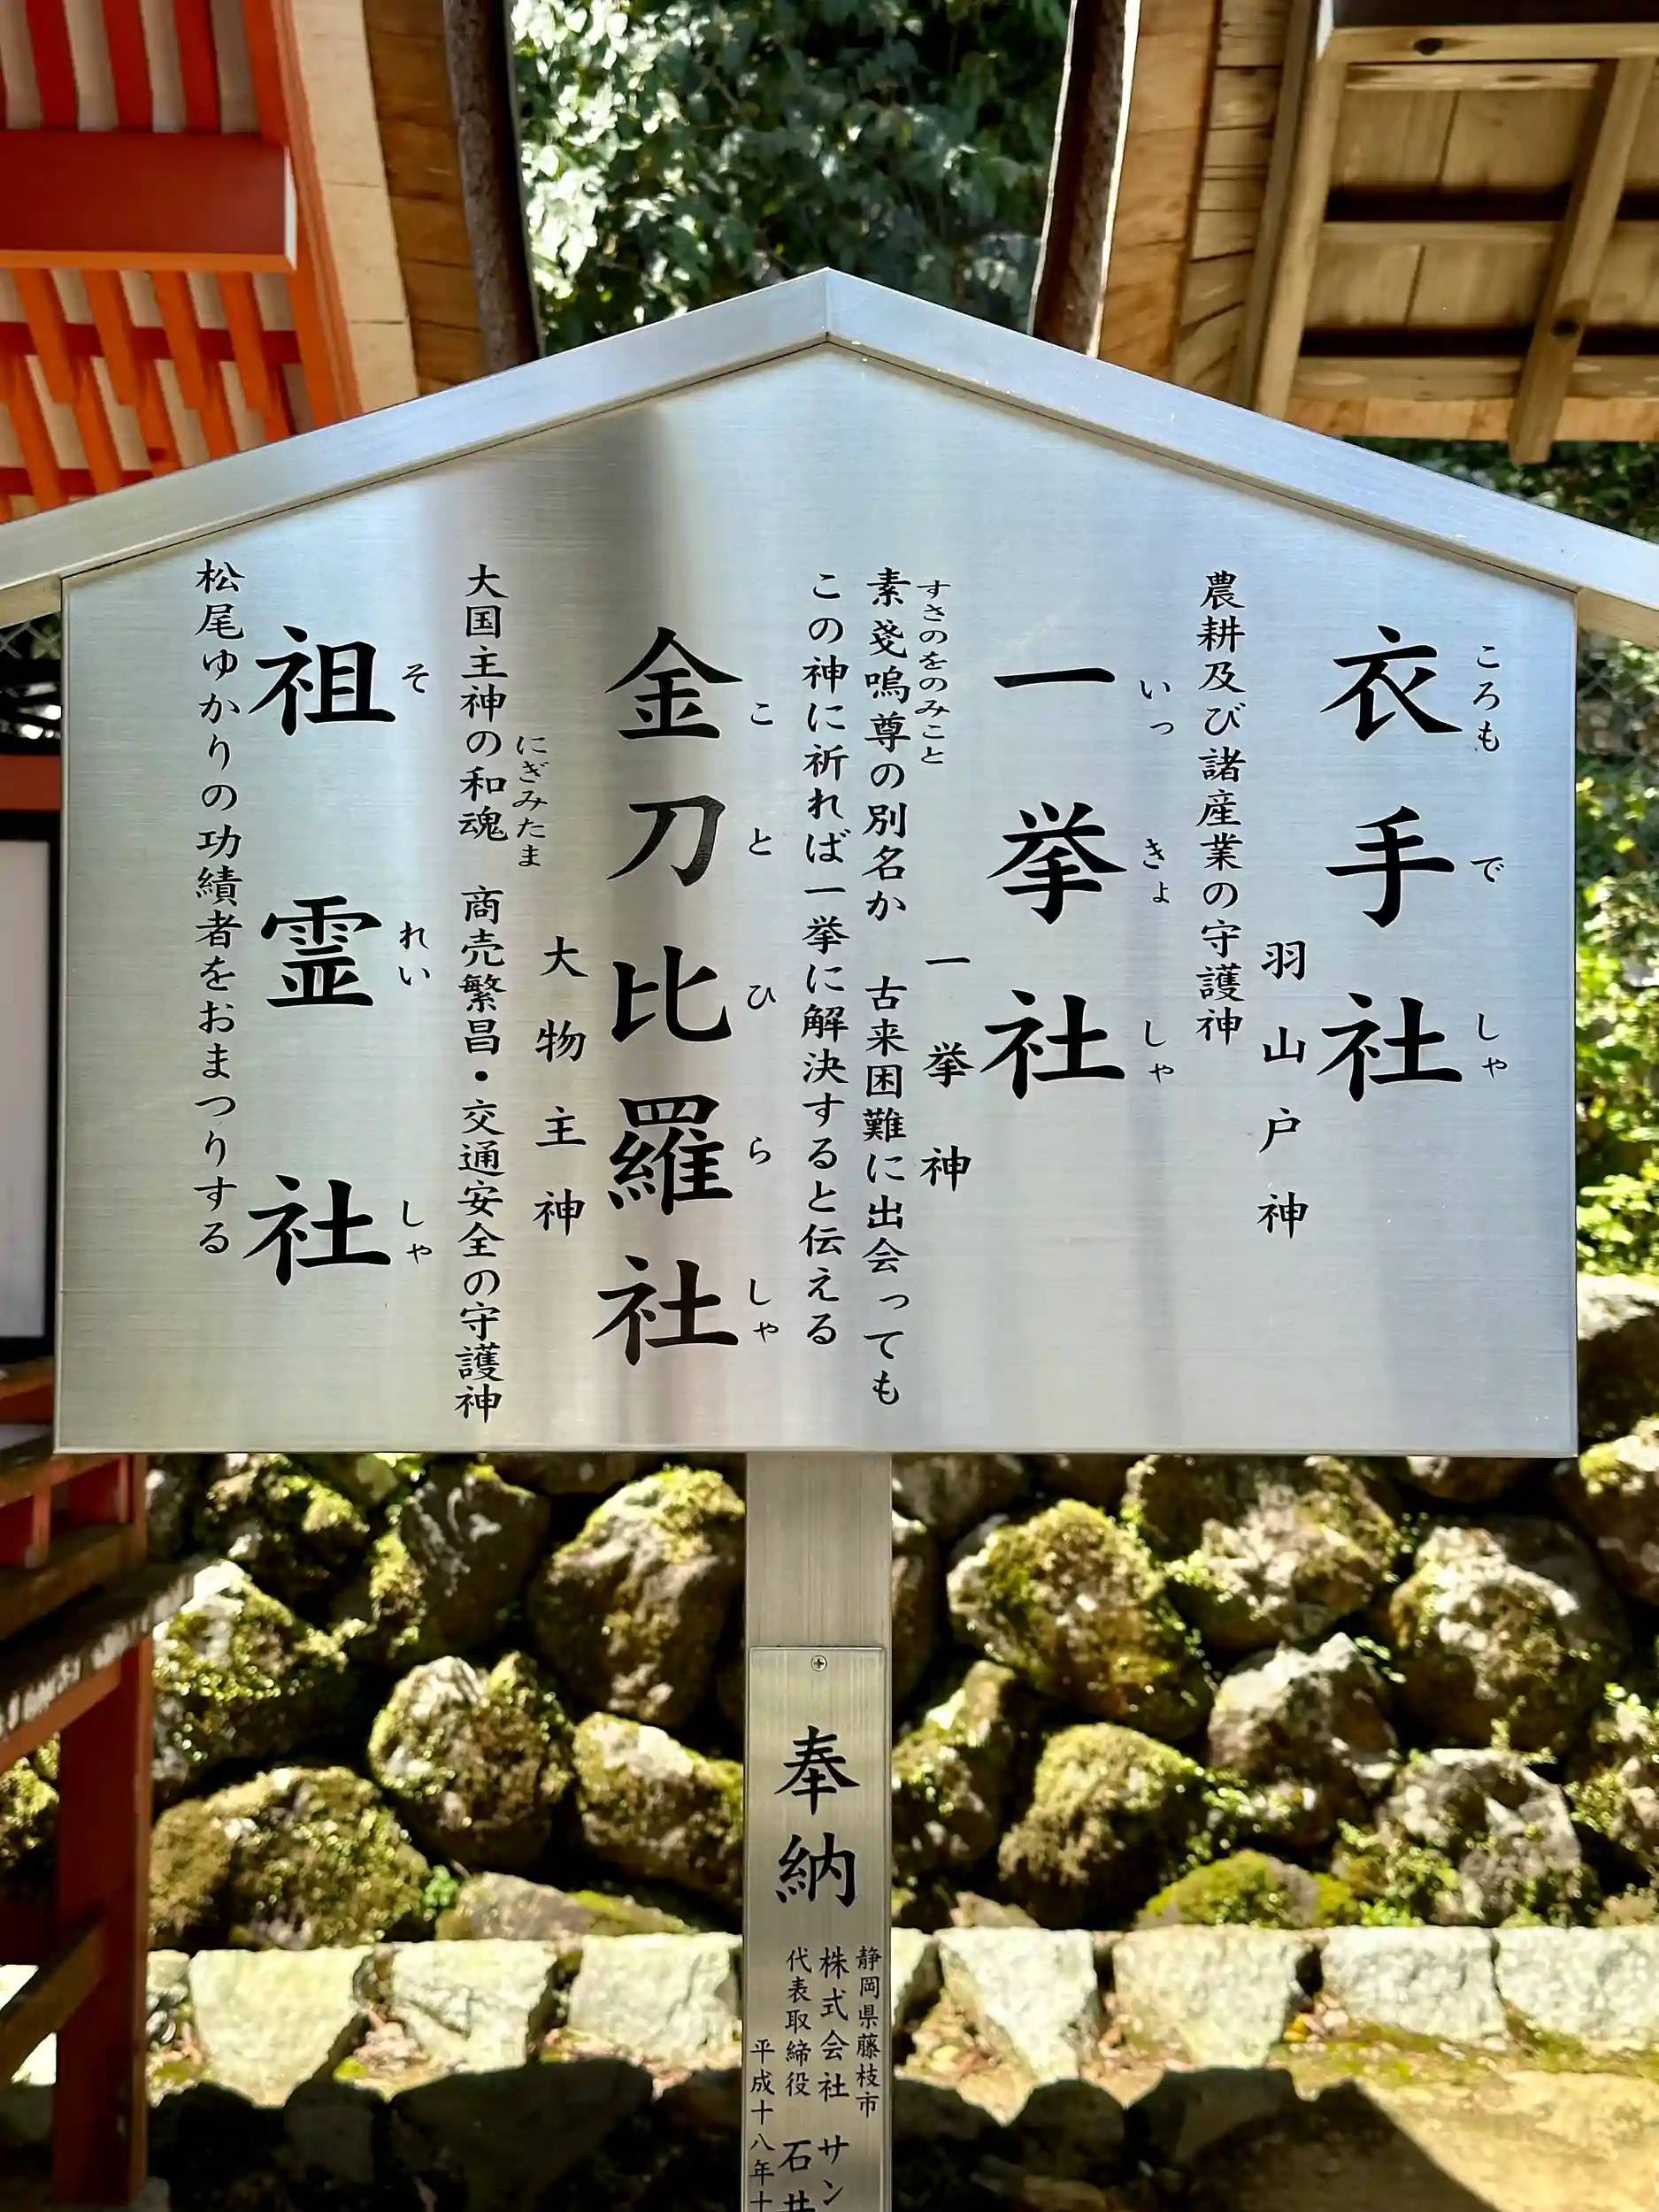 衣手社
ころもでしゃ
羽山戸神
農耕及び諸産業の守護神
一挙社
いっきょしゃ
一挙神
素戔嗚尊の別名か 古来困難に出会っても
すさのをのみこと
この神に祈れば一挙に解決すると伝える
金刀比羅社
ことひらしゃ
大物主神
大国主神の和魂 商売繁昌・交通安全の守護神
にぎみたま
祖霊社
それいしゃ
松尾ゆかりの功績者をおまつりする
奉納
静岡県藤枝市
株式会社 サン
代表取締役 石井
平成十八年十